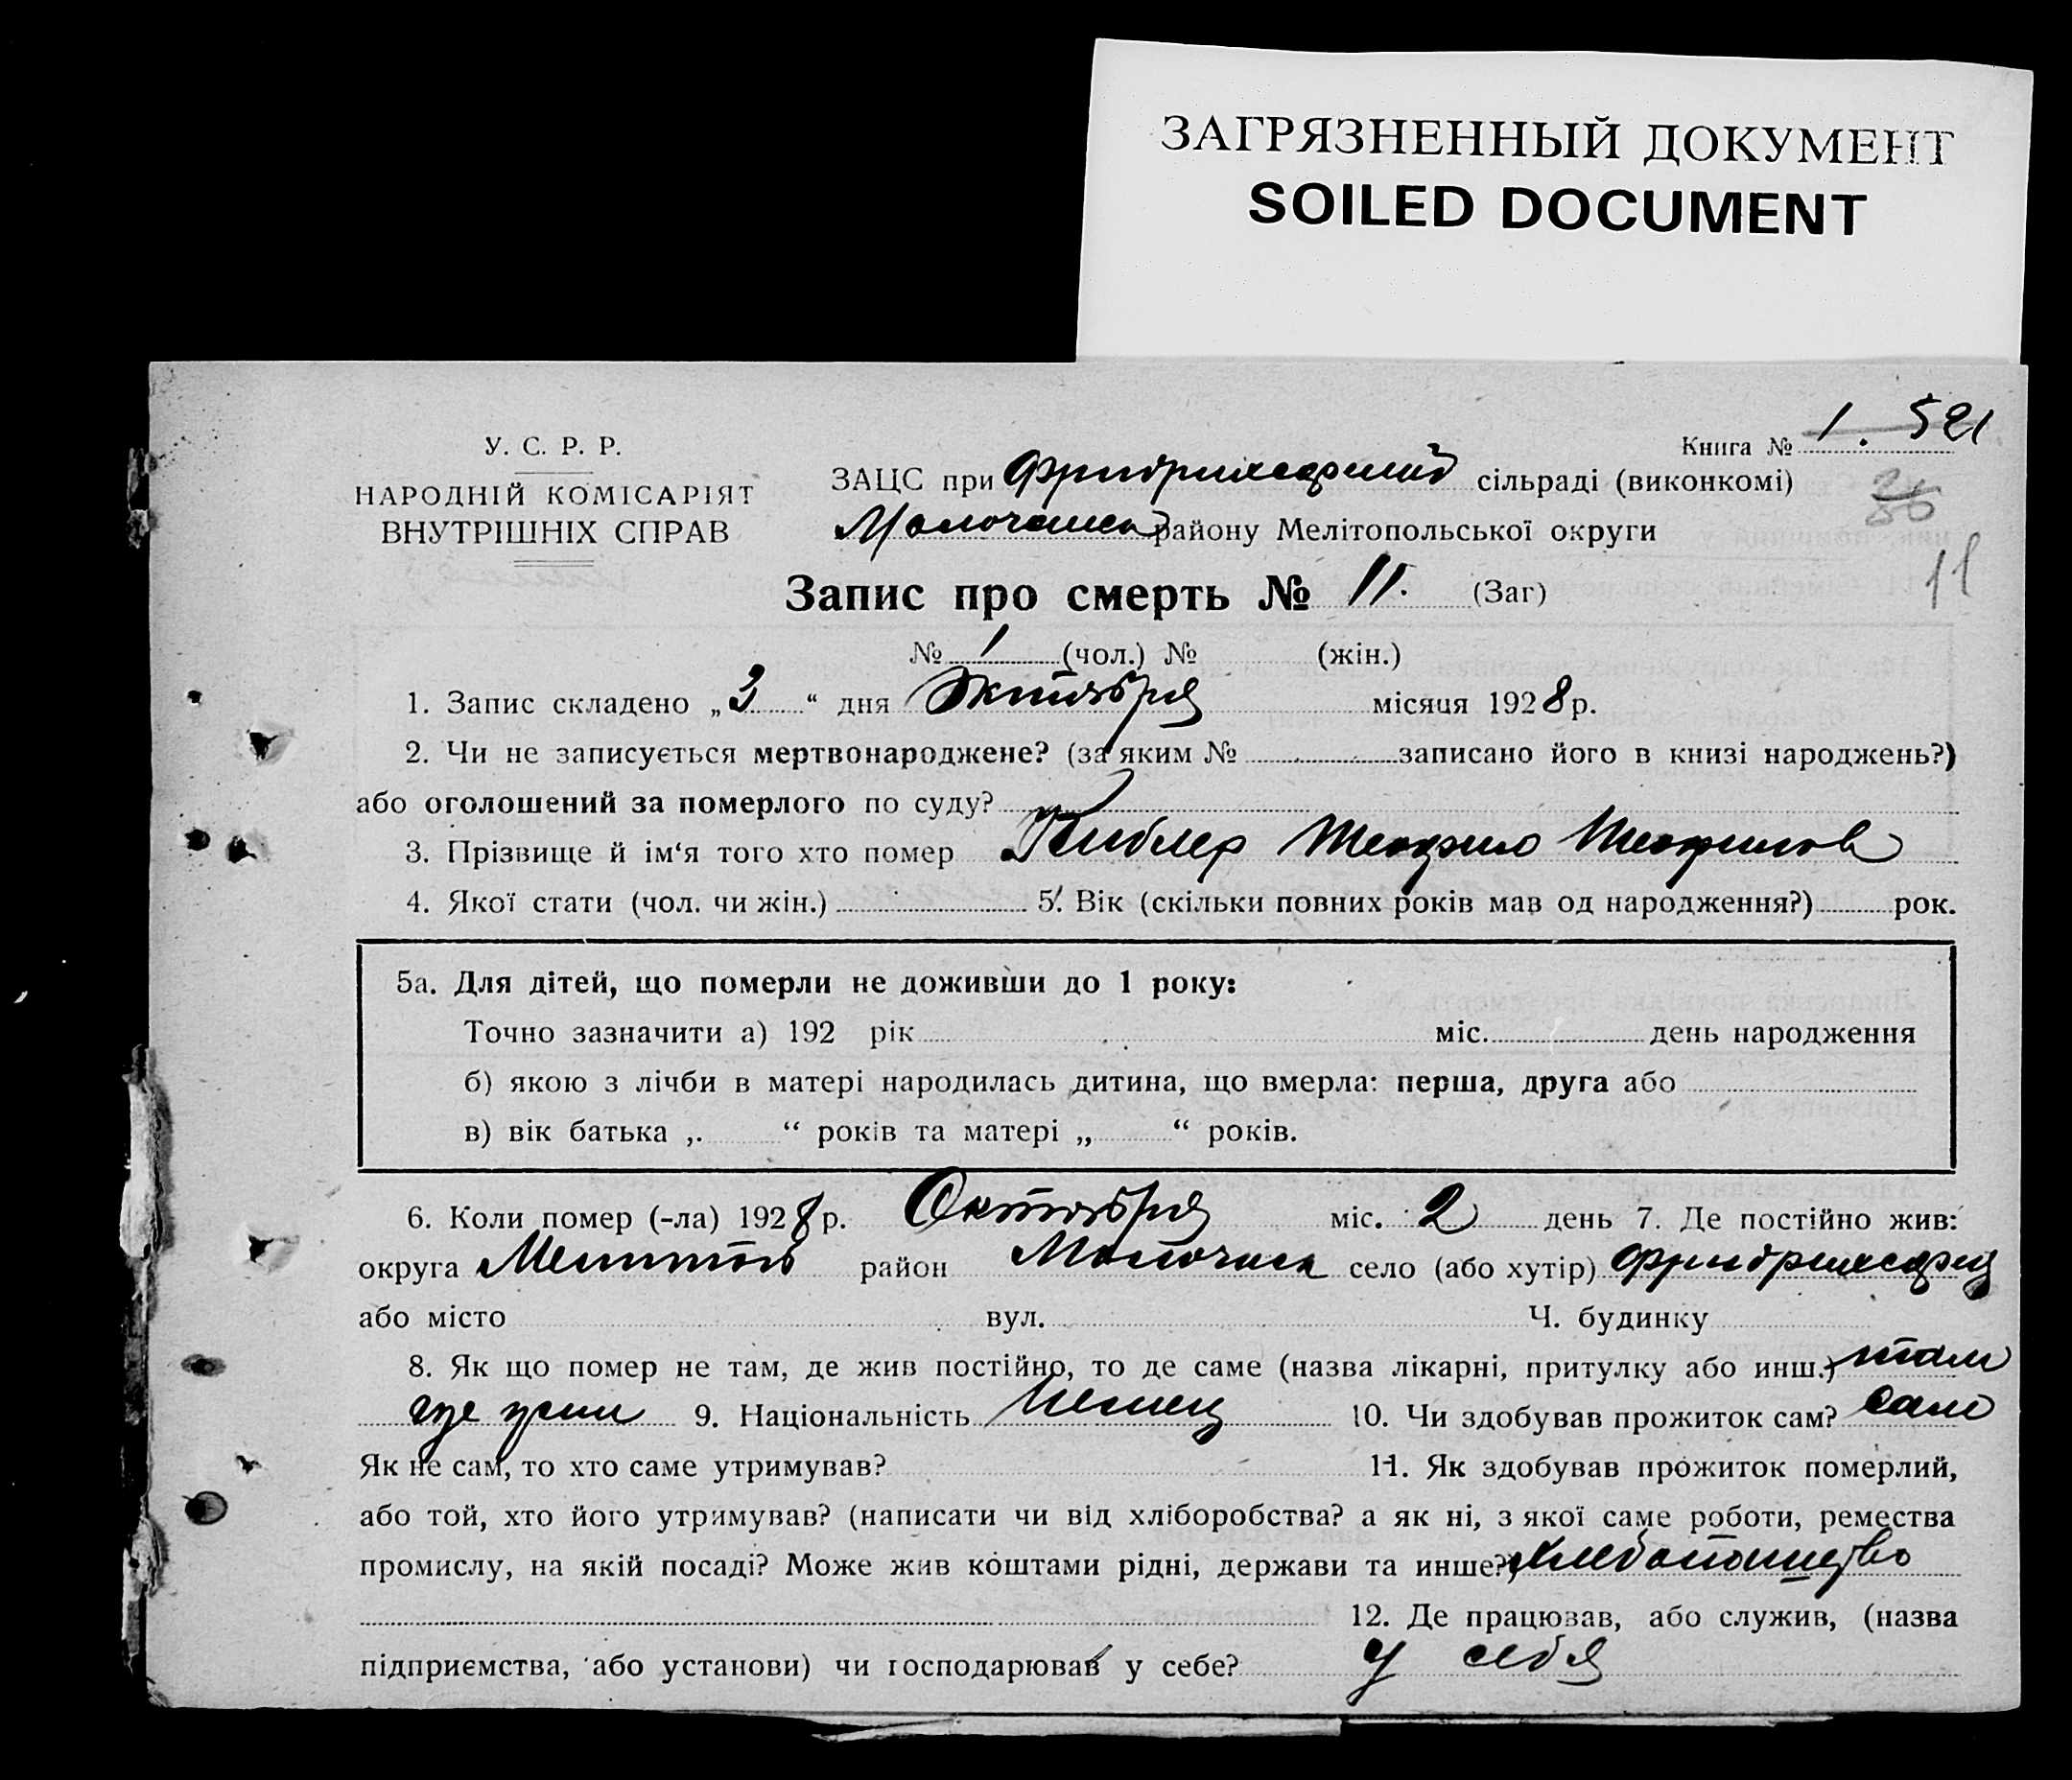 ЗАГРЯЗНЕННЫЙ ДОКУМЕНТ
SOILED DOCUMENT
У. С. Р. Р.
НАРОДНІЙ КОМІСАРІЯТ
ВНУТРІШНІХ СПРАВ
Книга № 1. 521
ЗАЦС при сільраді (виконкомі)
36
району Мелітопольської округи
11
Запис про смерть № 11. (Заг)
№ 1 (чол.) № (жін.)
1. Запис складено „3“ дня Октября місяця 1928 р.
2. Чи не записується мертвонароджене? (за яким № записано його в книзі народжень?)
або оголошений за померлого по суду?
3. Прізвище й ім‘я того хто помер Теофил Теофилов
4. Якої стати (чол. чи жін.) 5. Вік (скільки повних років мав од народження?) рок.
5а. Для дітей, що померли не доживши до 1 року:
Точно зазначити а) 192 рік міс. день народження
б) якою з лічби в матері народилась дитина, що вмерла: перша, друга або
в) вік батька „ “ років та матері „ “ років.
6. Коли помер (-ла) 1928 р. Октября міс. 2 день 7. Де постійно жив:
округа Мелитоп район Молочанск село (або хутір) Фридрихсфельд
або місто вул. Ч. будинку
8. Як що помер не там, де жив постійно, то де саме (назва лікарні, притулку або инш.) там
где жил 9. Національність Немец 10. Чи здобував прожиток сам? сам
Як не сам, то хто саме утримував? 11. Як здобував прожиток померлий,
або той, хто його утримував? (написати чи від хліборобства? а як ні, з якої саме роботи, ремества
промислу, на якій посаді? Може жив коштами рідні, держави та инше?) хлебопашество
12. Де працював, або служив, (назва
підприємства, або установи) чи господарював у себе? у себя